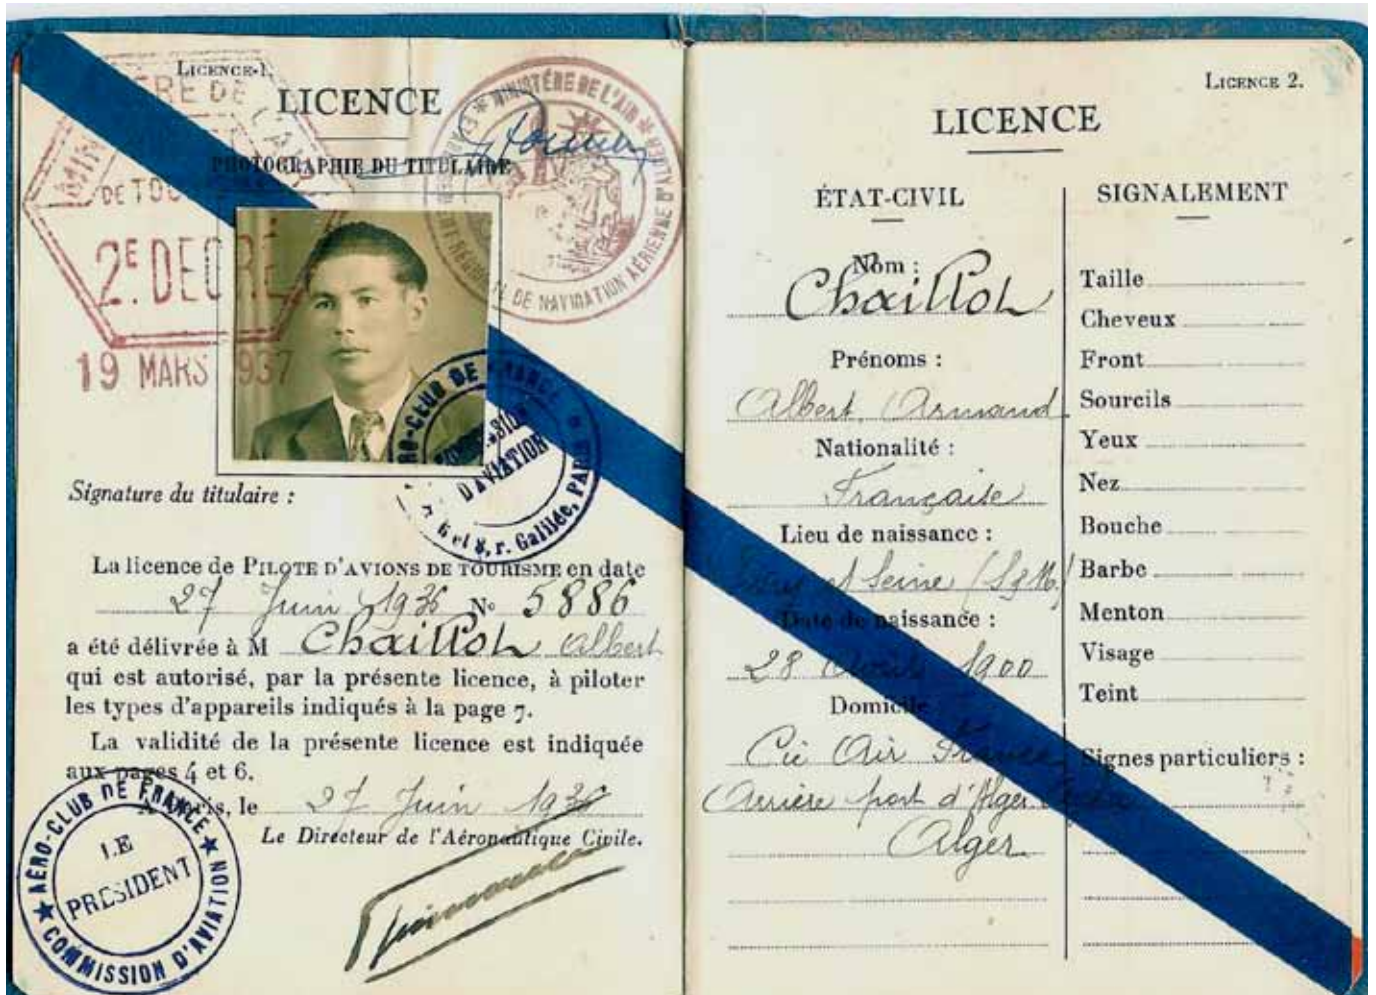 LICENCE-1.
LICENCE
PHOTOGRAPHIE DU TITULAIRE
MINISTÈRE DE L'AIR
DE NAVIGATION AÉRIENNE D'ALGER
DE TOU
2E DEGRÉ
19 MARS 1937
AÉRO-CLUB DE FRANCE
D'AVIATION
6 et 8, r. Galilée, PARIS
Signature du titulaire :
La licence de PILOTE D'AVIONS DE TOURISME en date
27 Juin 1936 No 5886
a été délivrée à M Chaillot Albert
qui est autorisé, par la présente licence, à piloter
les types d'appareils indiqués à la page 7.
La validité de la présente licence est indiquée
aux pages 4 et 6.
A Paris, le 27 Juin 1936
Le Directeur de l'Aéronautique Civile.
AÉRO-CLUB DE FRANCE
LE
PRESIDENT
COMMISSION D'AVIATION
LICENCE 2.
LICENCE
ÉTAT-CIVIL
Nom :
Chaillot
Prénoms :
Albert, Armand
Nationalité :
Française
Lieu de naissance :
Seine (S&M)
Date de naissance :
28 Août 1900
Domicile
Cie Air France
Arrière port d'Alger
Alger
SIGNALEMENT
Taille
Cheveux
Front
Sourcils
Yeux
Nez
Bouche
Barbe
Menton
Visage
Teint
Signes particuliers :